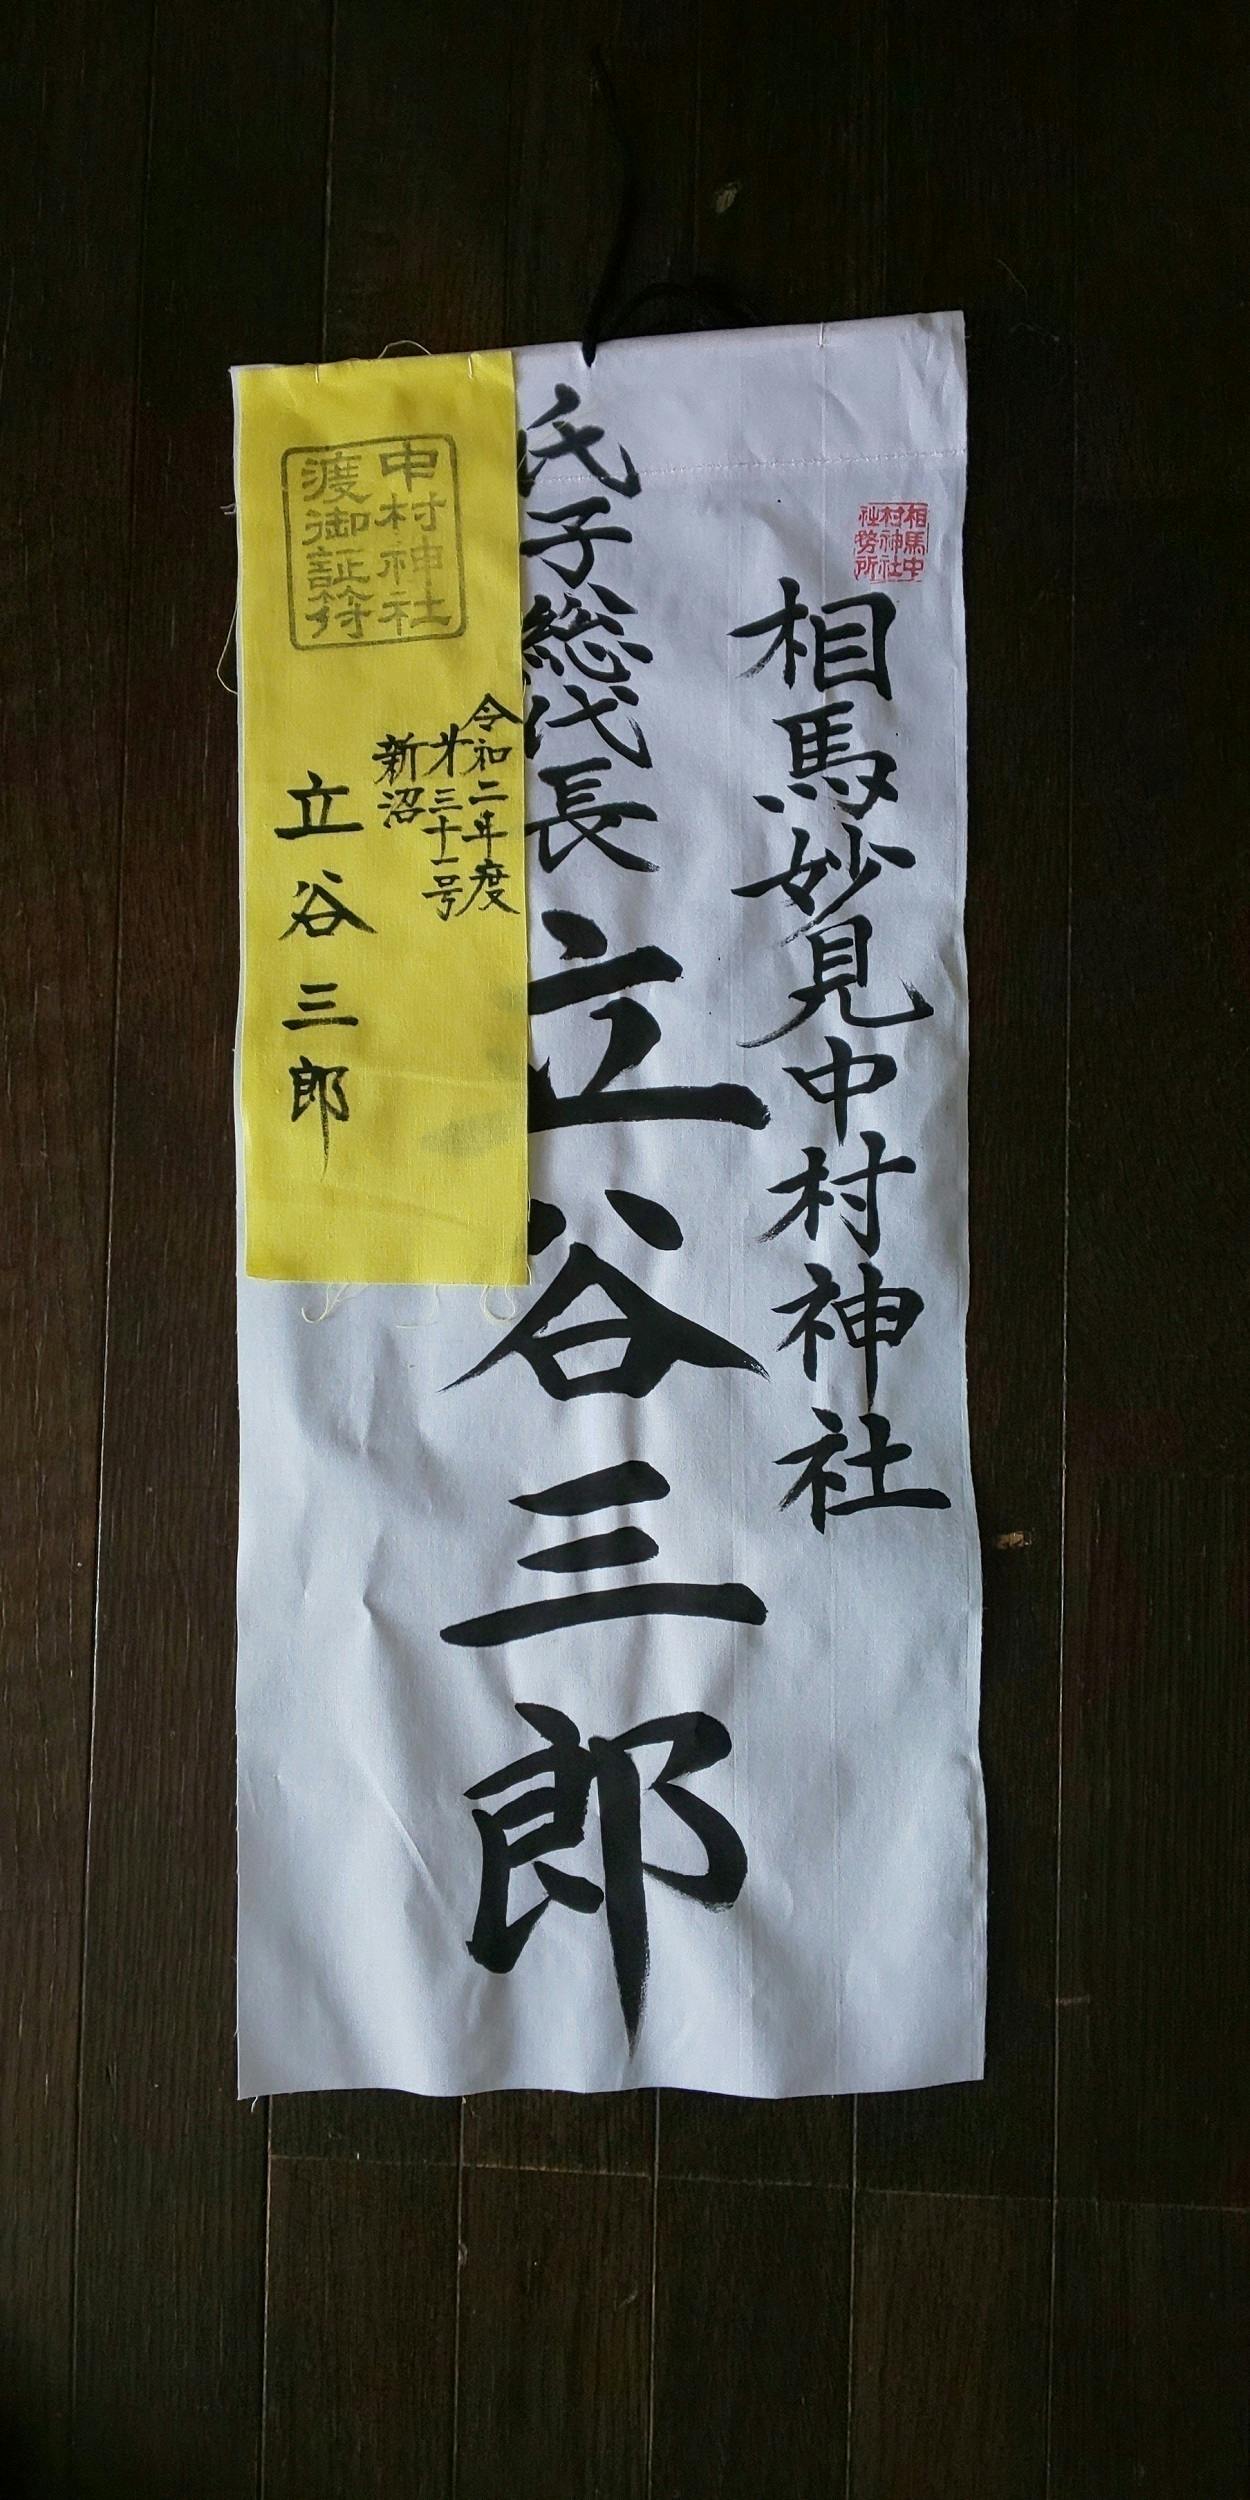 相馬中
村神社
社務所
相馬妙見中村神社
氏子総代長 立谷三郎
中村神社
渡御証符
令和二年度
才三十一号
新沼
立谷三郎